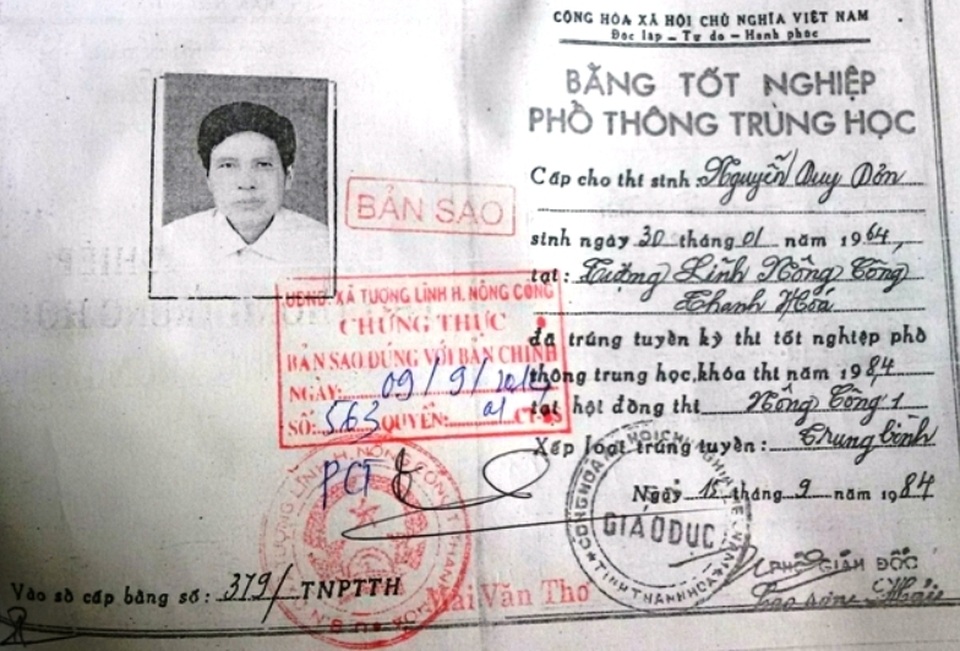 CỘNG HÒA XÃ HỘI CHỦ NGHĨA VIỆT NAM
Độc lập – Tự do – Hạnh phúc
BẰNG TỐT NGHIỆP
PHỔ THÔNG TRUNG HỌC
Cấp cho thí sinh: Nguyễn Duy Dỏn
sinh ngày 30 tháng 01 năm 1964,
tại: Tượng Lĩnh Nông Cống
Thanh Hoá
đã trúng tuyển kỳ thi tốt nghiệp phổ
thông trung học, khóa thi năm 1984
tại hội đồng thi Nông Cống 1
Xếp loại trúng tuyển: Trung bình
Ngày 15 tháng 9 năm 1984
PHÓ GIÁM ĐỐC
BẢN SAO
UBND. XÃ TƯỢNG LĨNH H. NÔNG CỐNG
CHỨNG THỰC
BẢN SAO ĐÚNG VỚI BẢN CHÍNH
NGÀY: 09/9/
SỐ: 563 QUYỂN: 01 CT-
PCT
GIÁO DỤC
TỈNH THANH HOÁ
Mai Văn Thơ
Vào sổ cấp bằng số: 379/ TNPTTH